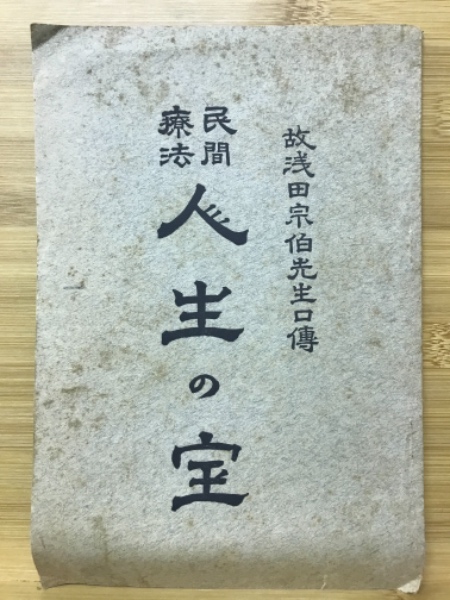 故浅田宗伯先生口傳
民間
療法
人生の宝